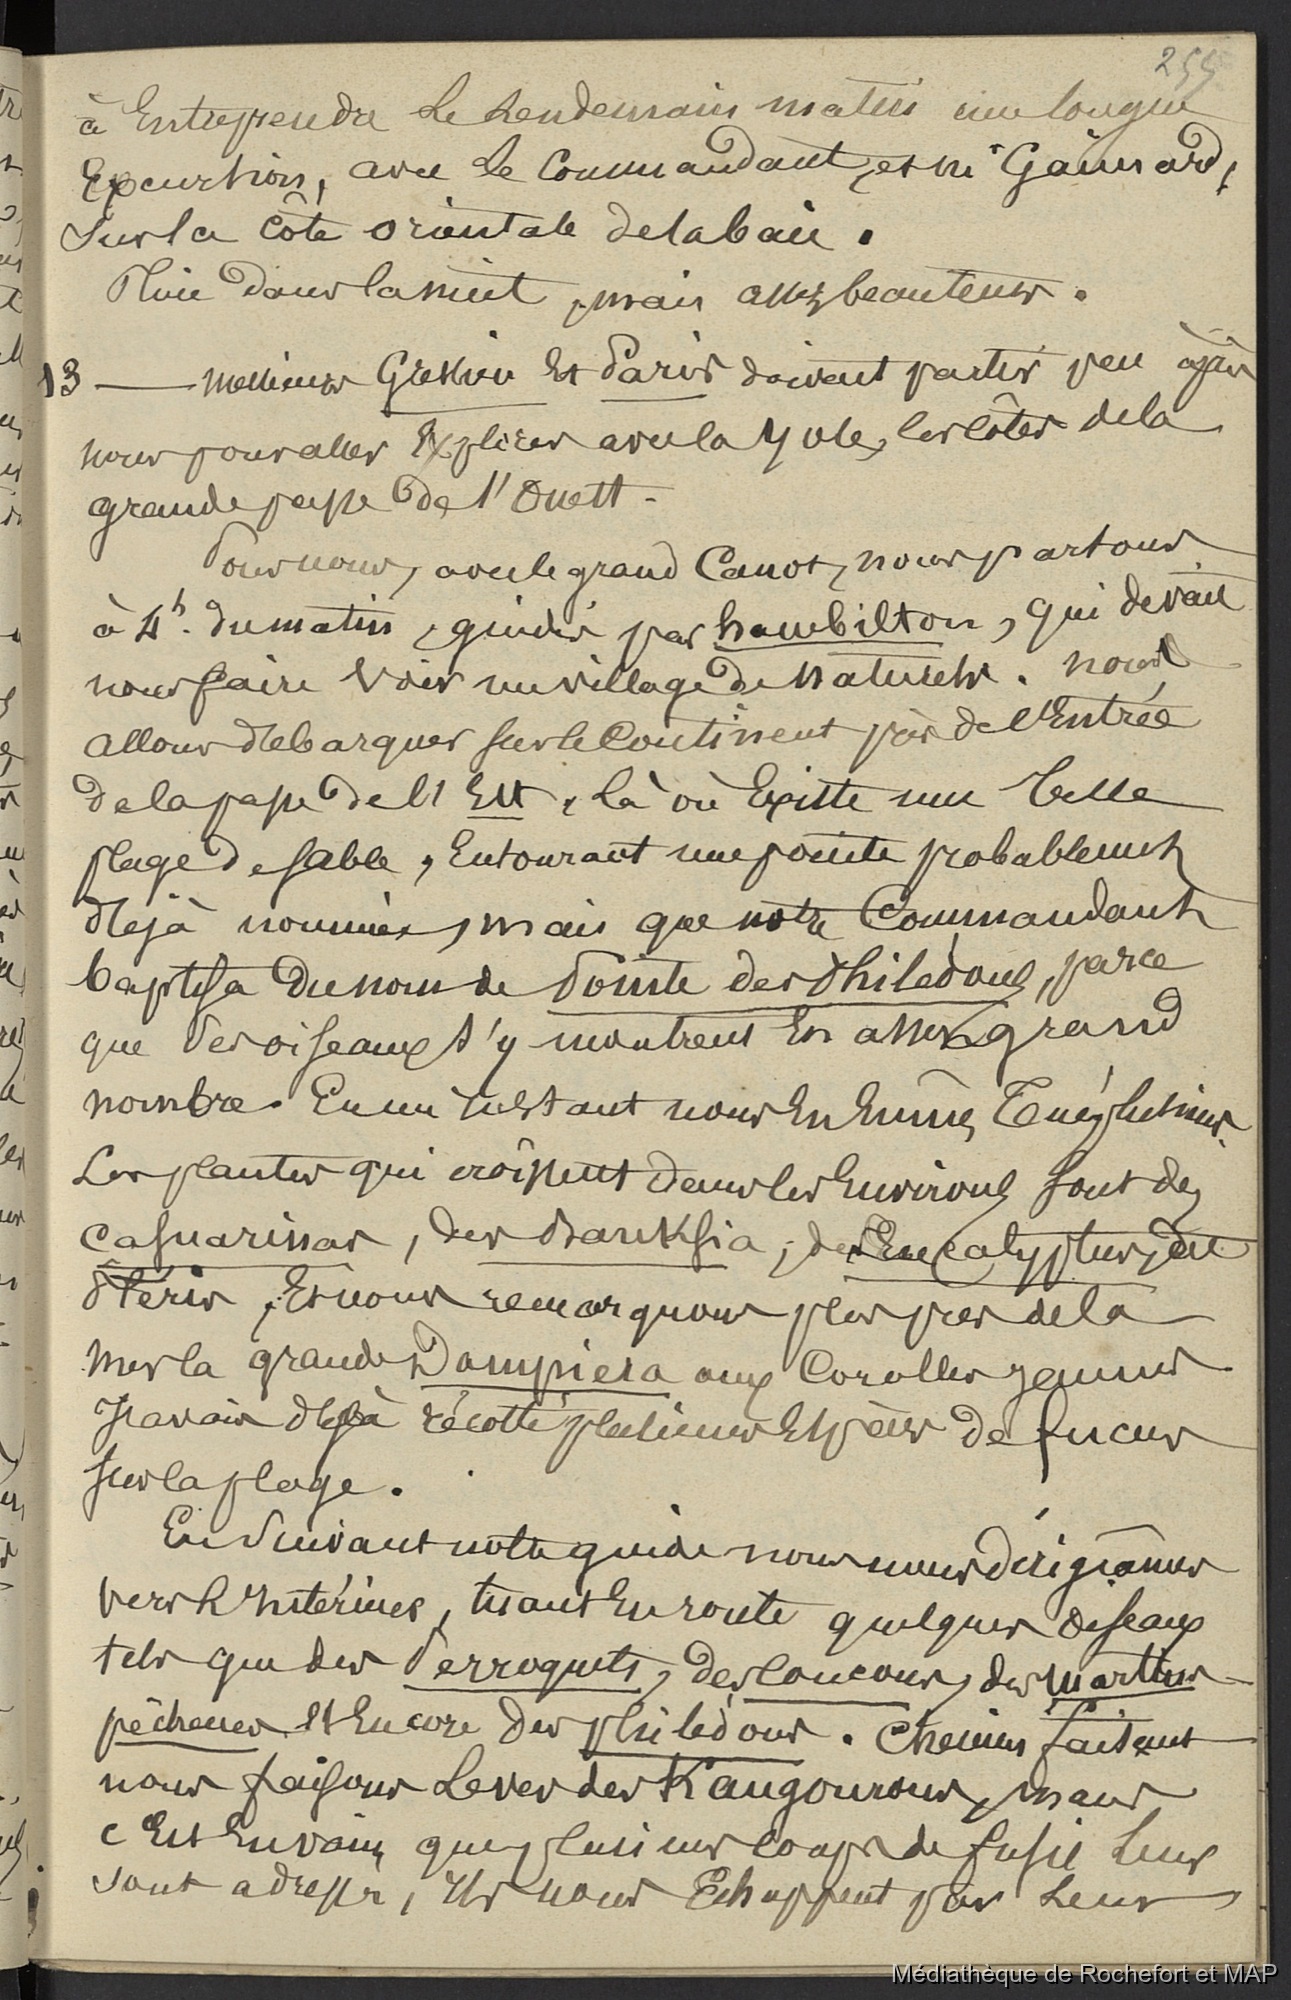 255
à Entreprendre le Lendemain matin une longue
Excurtion, avec le Commandant, et mr Gaimard,
Sur la côte orientale de la baie.
Pluie dans la nuit, mais assez beau tems.
13 — Messieurs Gressien Et Paris doivent partir peu après
nous pour aller Explorer avec la Yole, les côtes de la
grande passe de l'Ouest -
Pour nous, avec le grand Canot, nous partons
à 4h. du matin, guidés par hambilton, qui devait
nous faire voir un village de naturels. nous
allons débarquer sur le Continent près de l'Entrée
de la passe de l'Est, là où Existe une belle
plage de sable, Entourant une pointe probablement
déjà nommée, mais que notre Commandant
baptisa du nom de Pointe des Philédons, parce
que des oiseaux s'y montrent En assez grand
nombre. En un instant nous En Eûmes Tué plusieurs.
Les plantes qui croissent dans les Environs sont des
Casuarinas, des Banksia, des Eucalyptus, du
Ptéris, Et nous remarquons plus près de la
Mer la grande Dampiera aux Corolles jaunes
J'avais déjà récolté plusieurs Espèces de fucus
sur la plage.
En Suivant notre guide nous nous dirigeâmes
vers L'Intérieur, tirant En route quelques oiseaux
tels que des Perroquets, des Coucous, des martins
pêcheurs Et Encore des philédons. Chemin faisant
nous faisons Lever des Kangourous, mais
c'Est En vain que plusieurs coups de fusil Leur
sont adressés, Ils nous Echappent par Leurs
Médiathèque de Rochefort et MAP